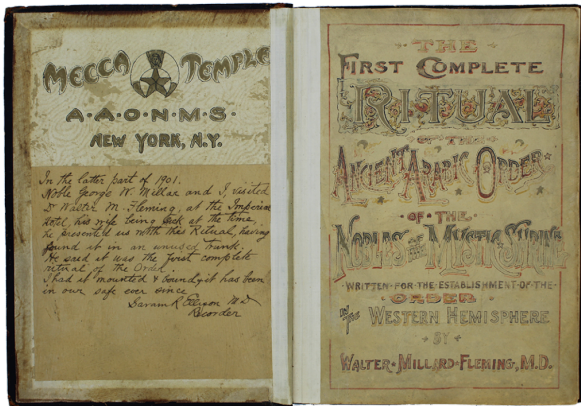 MECCA TEMPLE
A·A·O·N·M·S·
NEW YORK, N.Y.
In the latter part of 1901.
Noble George W. Millar and I visited
Dr Walter M. Fleming, at the Imperial
Hotel, his wife being sick at the time,
he presented us with this Ritual, having
found it in an unused trunk.
He said it was the first complete
ritual of the Order.
I had it mounted & bound & it has been
in our safe ever since
R Ellison M.D
Recorder
·THE·
FIRST COMPLETE
RITUAL
OF THE
ANCIENT ARABIC ORDER
·OF·THE·
NOBLES OF THE MYSTIC SHRINE
·WRITTEN·FOR·THE·ESTABLISHMENT·OF·THE·
ORDER
IN THE WESTERN HEMISPHERE
·BY·
WALTER·MILLARD·FLEMING, M.D.